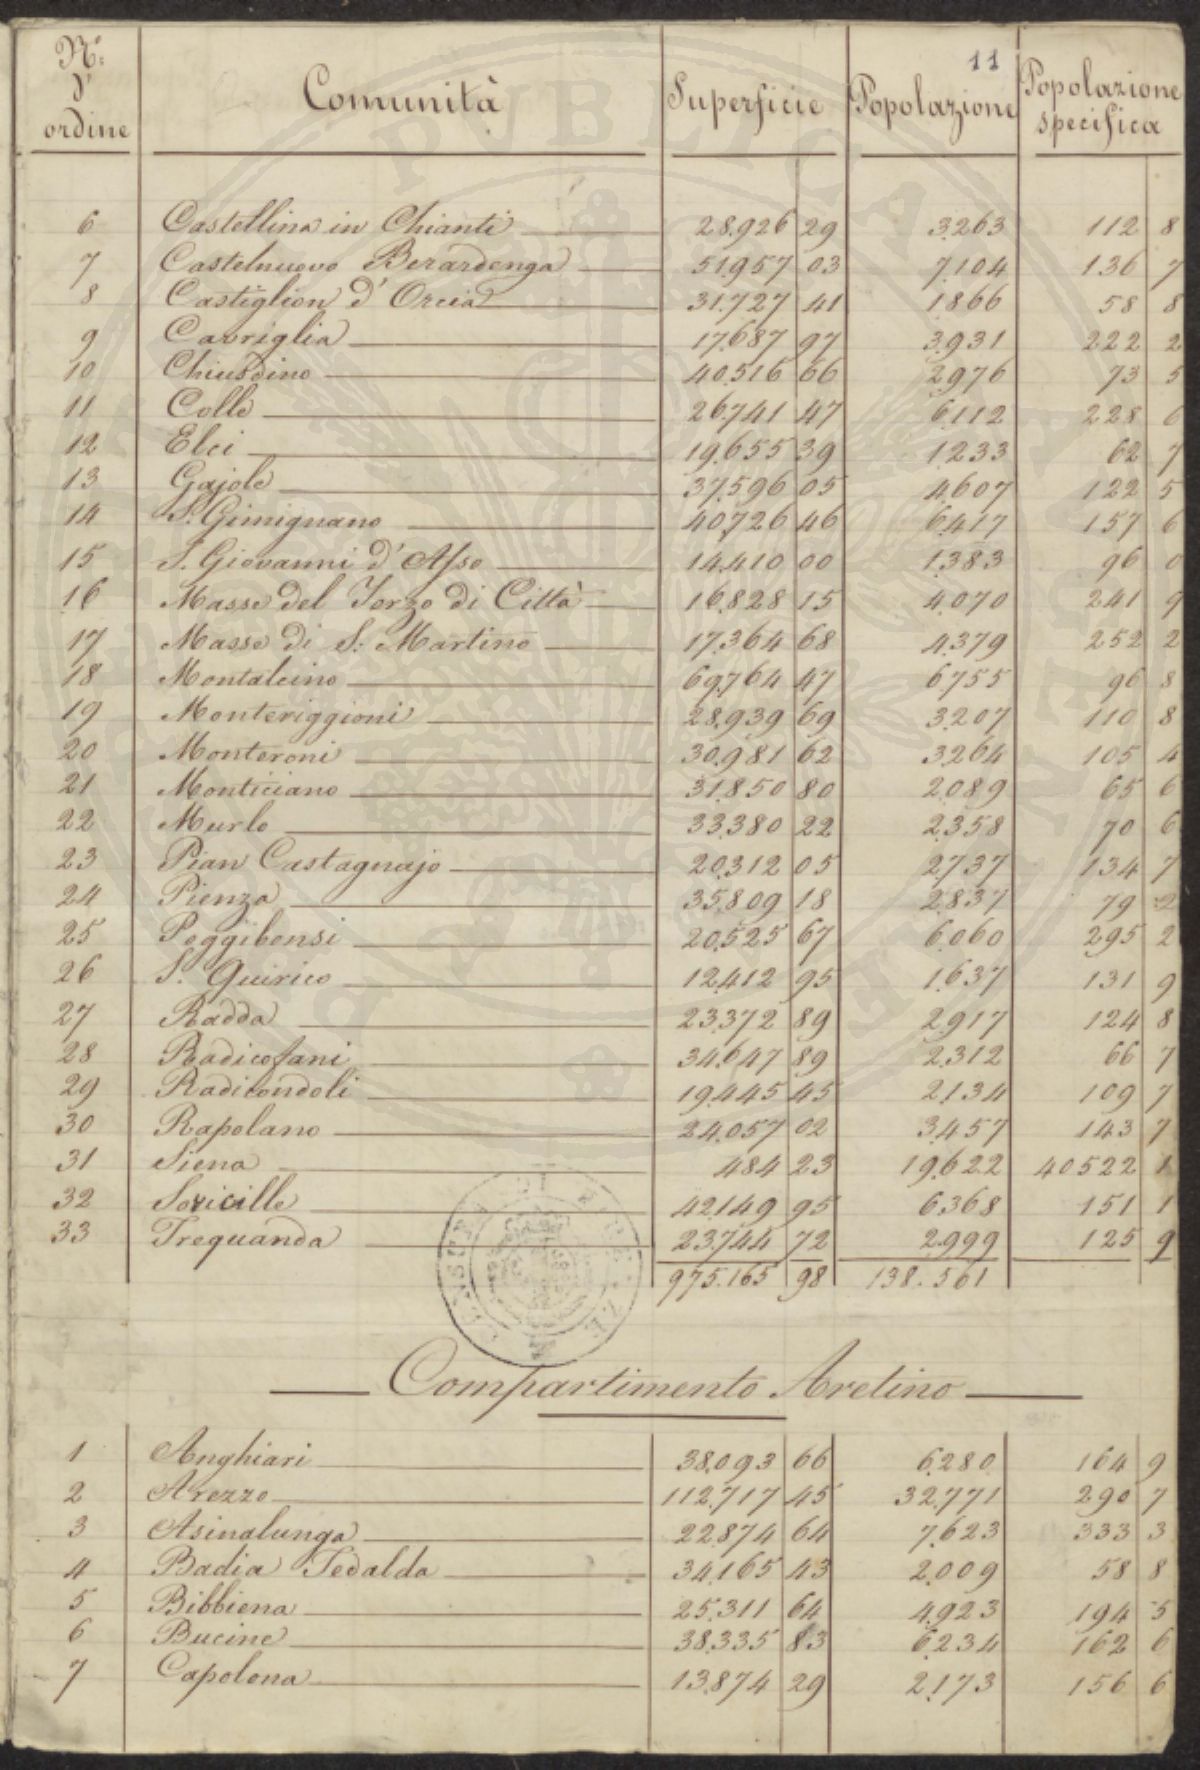 11
N.º d' ordine Comunità Superficie Popolazione Popolazione specifica
6 Castellina in Chianti 28.926 29 3.263 112 8
7 Castelnuovo Berardenga 51.957 03 7.104 136 7
8 Castiglion d' Orcia 31.727 41 1.866 58 8
9 Cavriglia 17.687 97 3.931 222 2
10 Chiusdino 40.516 66 2.976 73 5
11 Colle 26.741 47 6.112 228 6
12 Elci 19.655 39 1.233 62 7
13 Gajole 37.596 05 4.607 122 5
14 S. Gimignano 40.726 46 6.417 157 6
15 S. Giovanni d' Asso 14.410 00 1.383 96 0
16 Masse del Terzo di Città 16.828 15 4.070 241 9
17 Masse di S. Martino 17.364 68 4.379 252 2
18 Montalcino 69.764 47 6.755 96 8
19 Monteriggioni 28.939 69 3.207 110 8
20 Monteroni 30.981 62 3.264 105 4
21 Monticiano 31.850 80 2.089 65 6
22 Murlo 33.380 22 2.358 70 6
23 Pian Castagnajo 20.312 05 2.737 134 7
24 Pienza 35.809 18 2.837 79 2
25 Poggibonsi 20.525 67 6.060 295 2
26 S. Quirico 12.412 95 1.637 131 9
27 Radda 23.372 89 2.917 124 8
28 Radicofani 34.647 89 2.312 66 7
29 Radicondoli 19.445 45 2.134 109 7
30 Rapolano 24.057 02 3.457 143 7
31 Siena 484 23 19.622 40522 1
32 Sovicille 42.149 95 6.368 151 1
33 Trequanda 23.744 72 2.999 125 9
975.165 98 138.561
Compartimento Aretino
1 Anghiari 38.093 66 6.280 164 9
2 Arezzo 112.717 45 32.771 290 7
3 Asinalunga 22.874 64 7.623 333 3
4 Badia Tedalda 34.165 43 2.009 58 8
5 Bibbiena 25.311 64 4.923 194 5
6 Bucine 38.335 83 6.234 162 6
7 Capolona 13.874 29 2.173 156 6